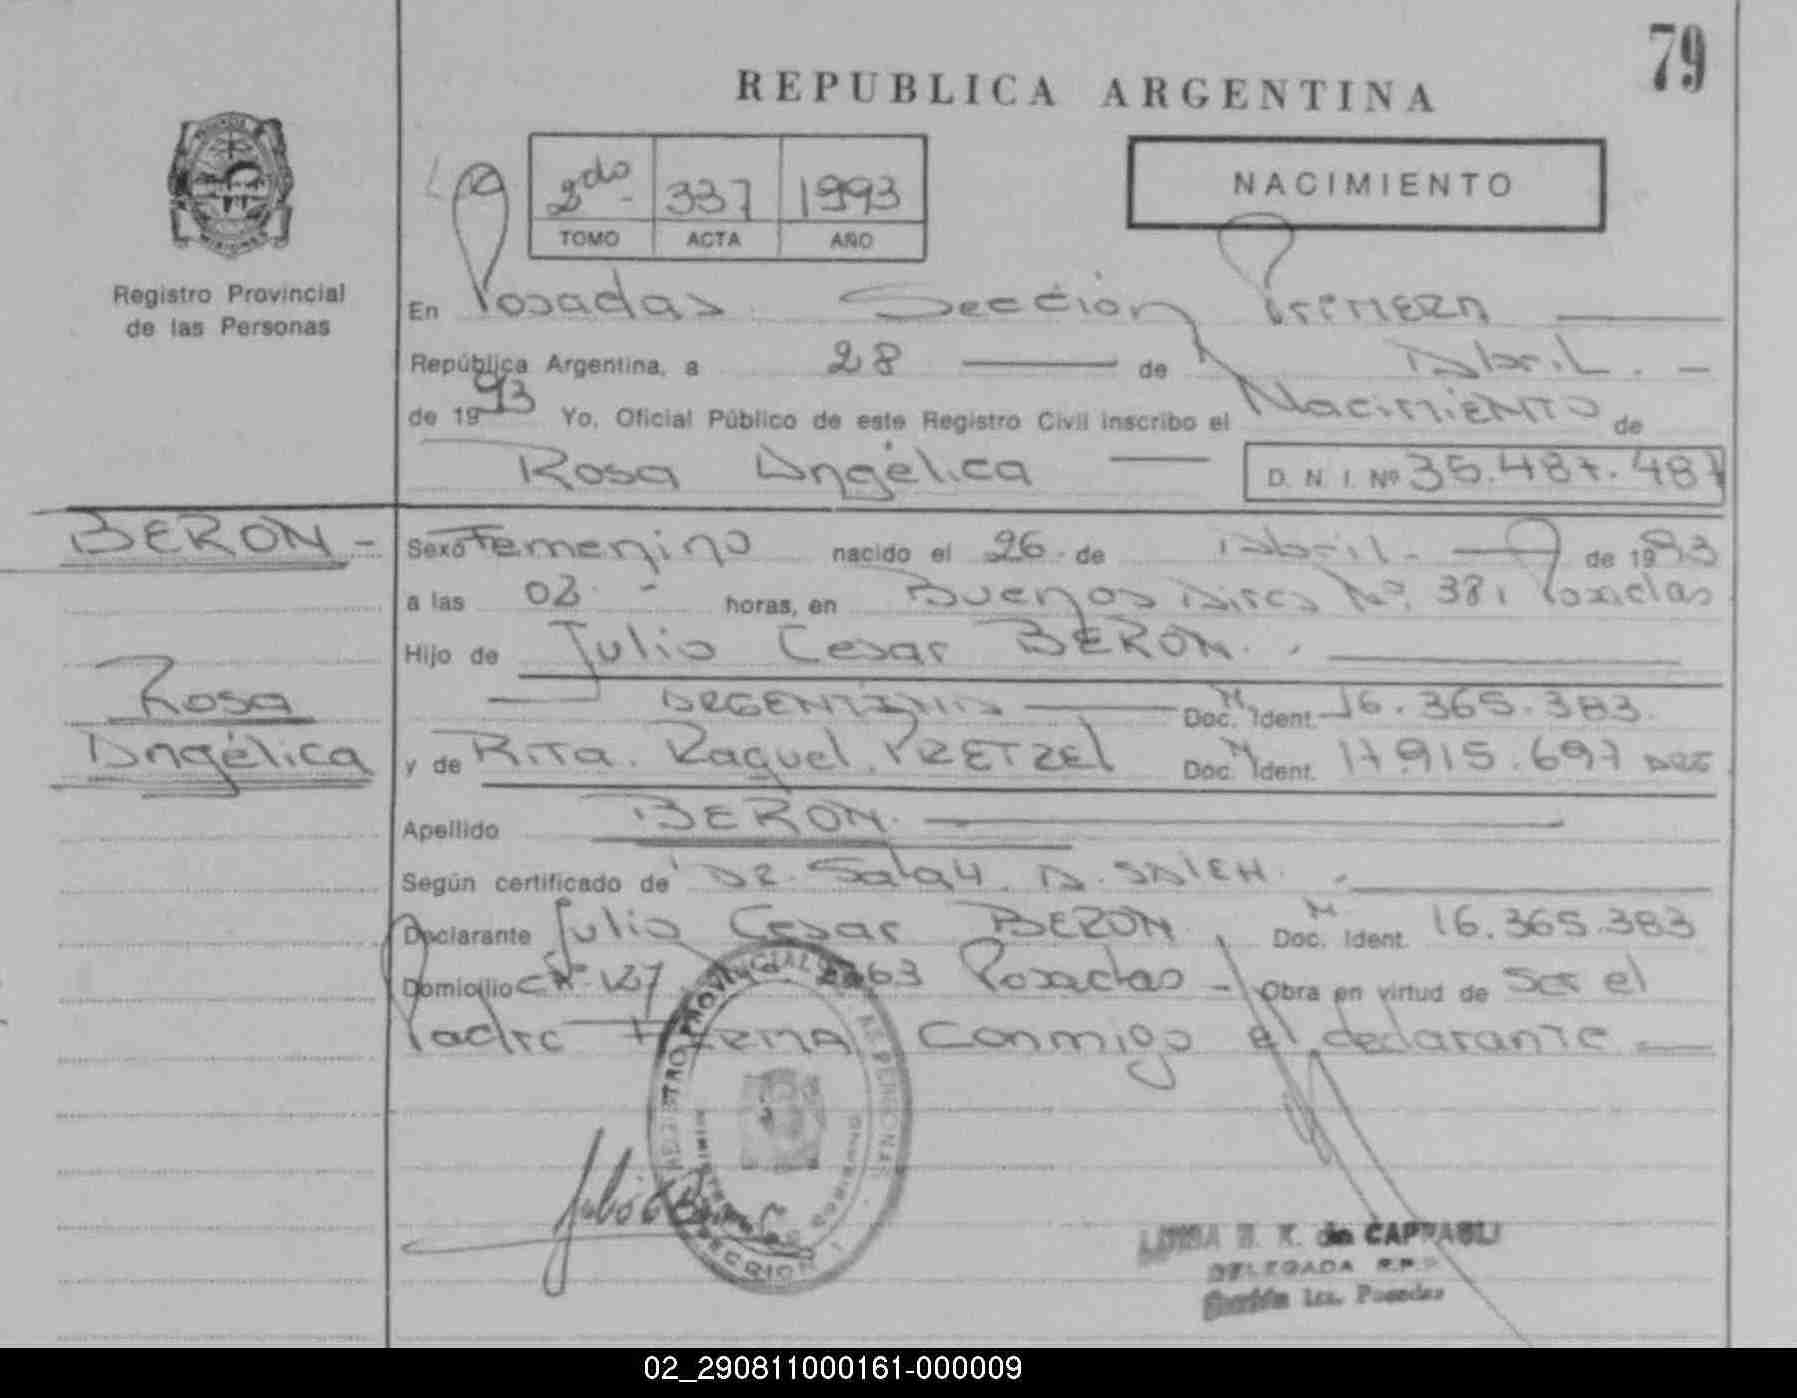 79
REPUBLICA ARGENTINA
2do 337 1993
TOMO ACTA AÑO
NACIMIENTO
Registro Provincial
de las Personas
En Posadas Sección Primera
República Argentina, a 28 de Abril.
de 1993 Yo, Oficial Público de este Registro Civil inscribo el Nacimiento de
Rosa Angélica D. N. I. Nº 35.487.487
BERON
Rosa
Angélica
Sexo Femenino nacido el 26 de Abril de 1993
a las horas, en Buenos Aires Nº 381 Posadas
Hijo de Julio Cesar BERON
Doc. M Ident. 16.365.383.
y de Rita Raquel PRETZEL Doc. M Ident. 17.915.697 ARG
Apellido BERON
Según certificado de DR. A. SALEH
Declarante Julio Cesar BERON M Doc. Ident. 16.365.383
Domicilio 127 Posadas - Obra en virtud de Ser el
Padre FIRMA Conmigo el declarante
REGISTRO PROVINCIAL DE LAS PERSONAS
MISIONES
de CAPPAGLI
DELEGADA R.P.P
Sección 1ra. Posadas
02_290811000161-000009